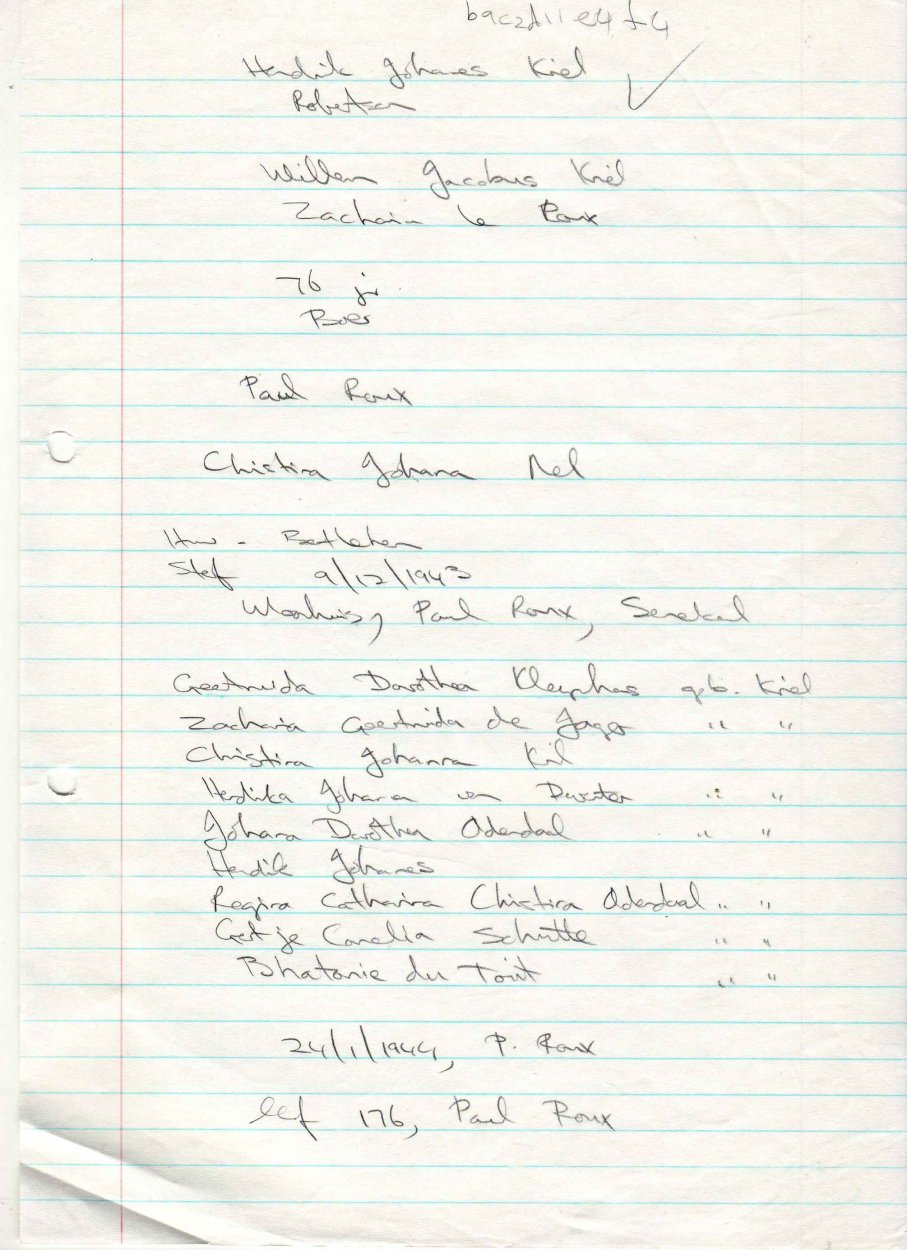 b9c2d11e4f4
Hendrik Johannes Kriel
Robertson
Willem Jacobus Kriel
Zacharia le Roux
76 jr
Boer
Paul Roux
Christina Johanna Nel
Huw - Bethlehem
Sterf 9/12/1943
Woonhuis, Paul Roux, Senekal
Geertruida Dorothea Kleynhans geb. Kriel
Zacharia Geertruida de Jager " "
Christina Johanna Kriel
Hendrika Johanna van Deventer " "
Johanna Dorothea Odendaal " "
Hendrik Johannes
Regina Catharina Christina Odendaal " "
Gertje Cornelia Schutte " "
du Toit " "
24/1/1944, P. Roux
Leef 176, Paul Roux